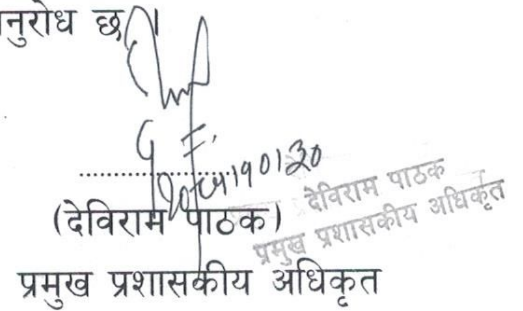 नुरोध छ ।
(देविराम पाठक)
प्रमुख प्रशासकीय अधिकृत
देविराम पाठक
प्रमुख प्रशासकीय अधिकृत